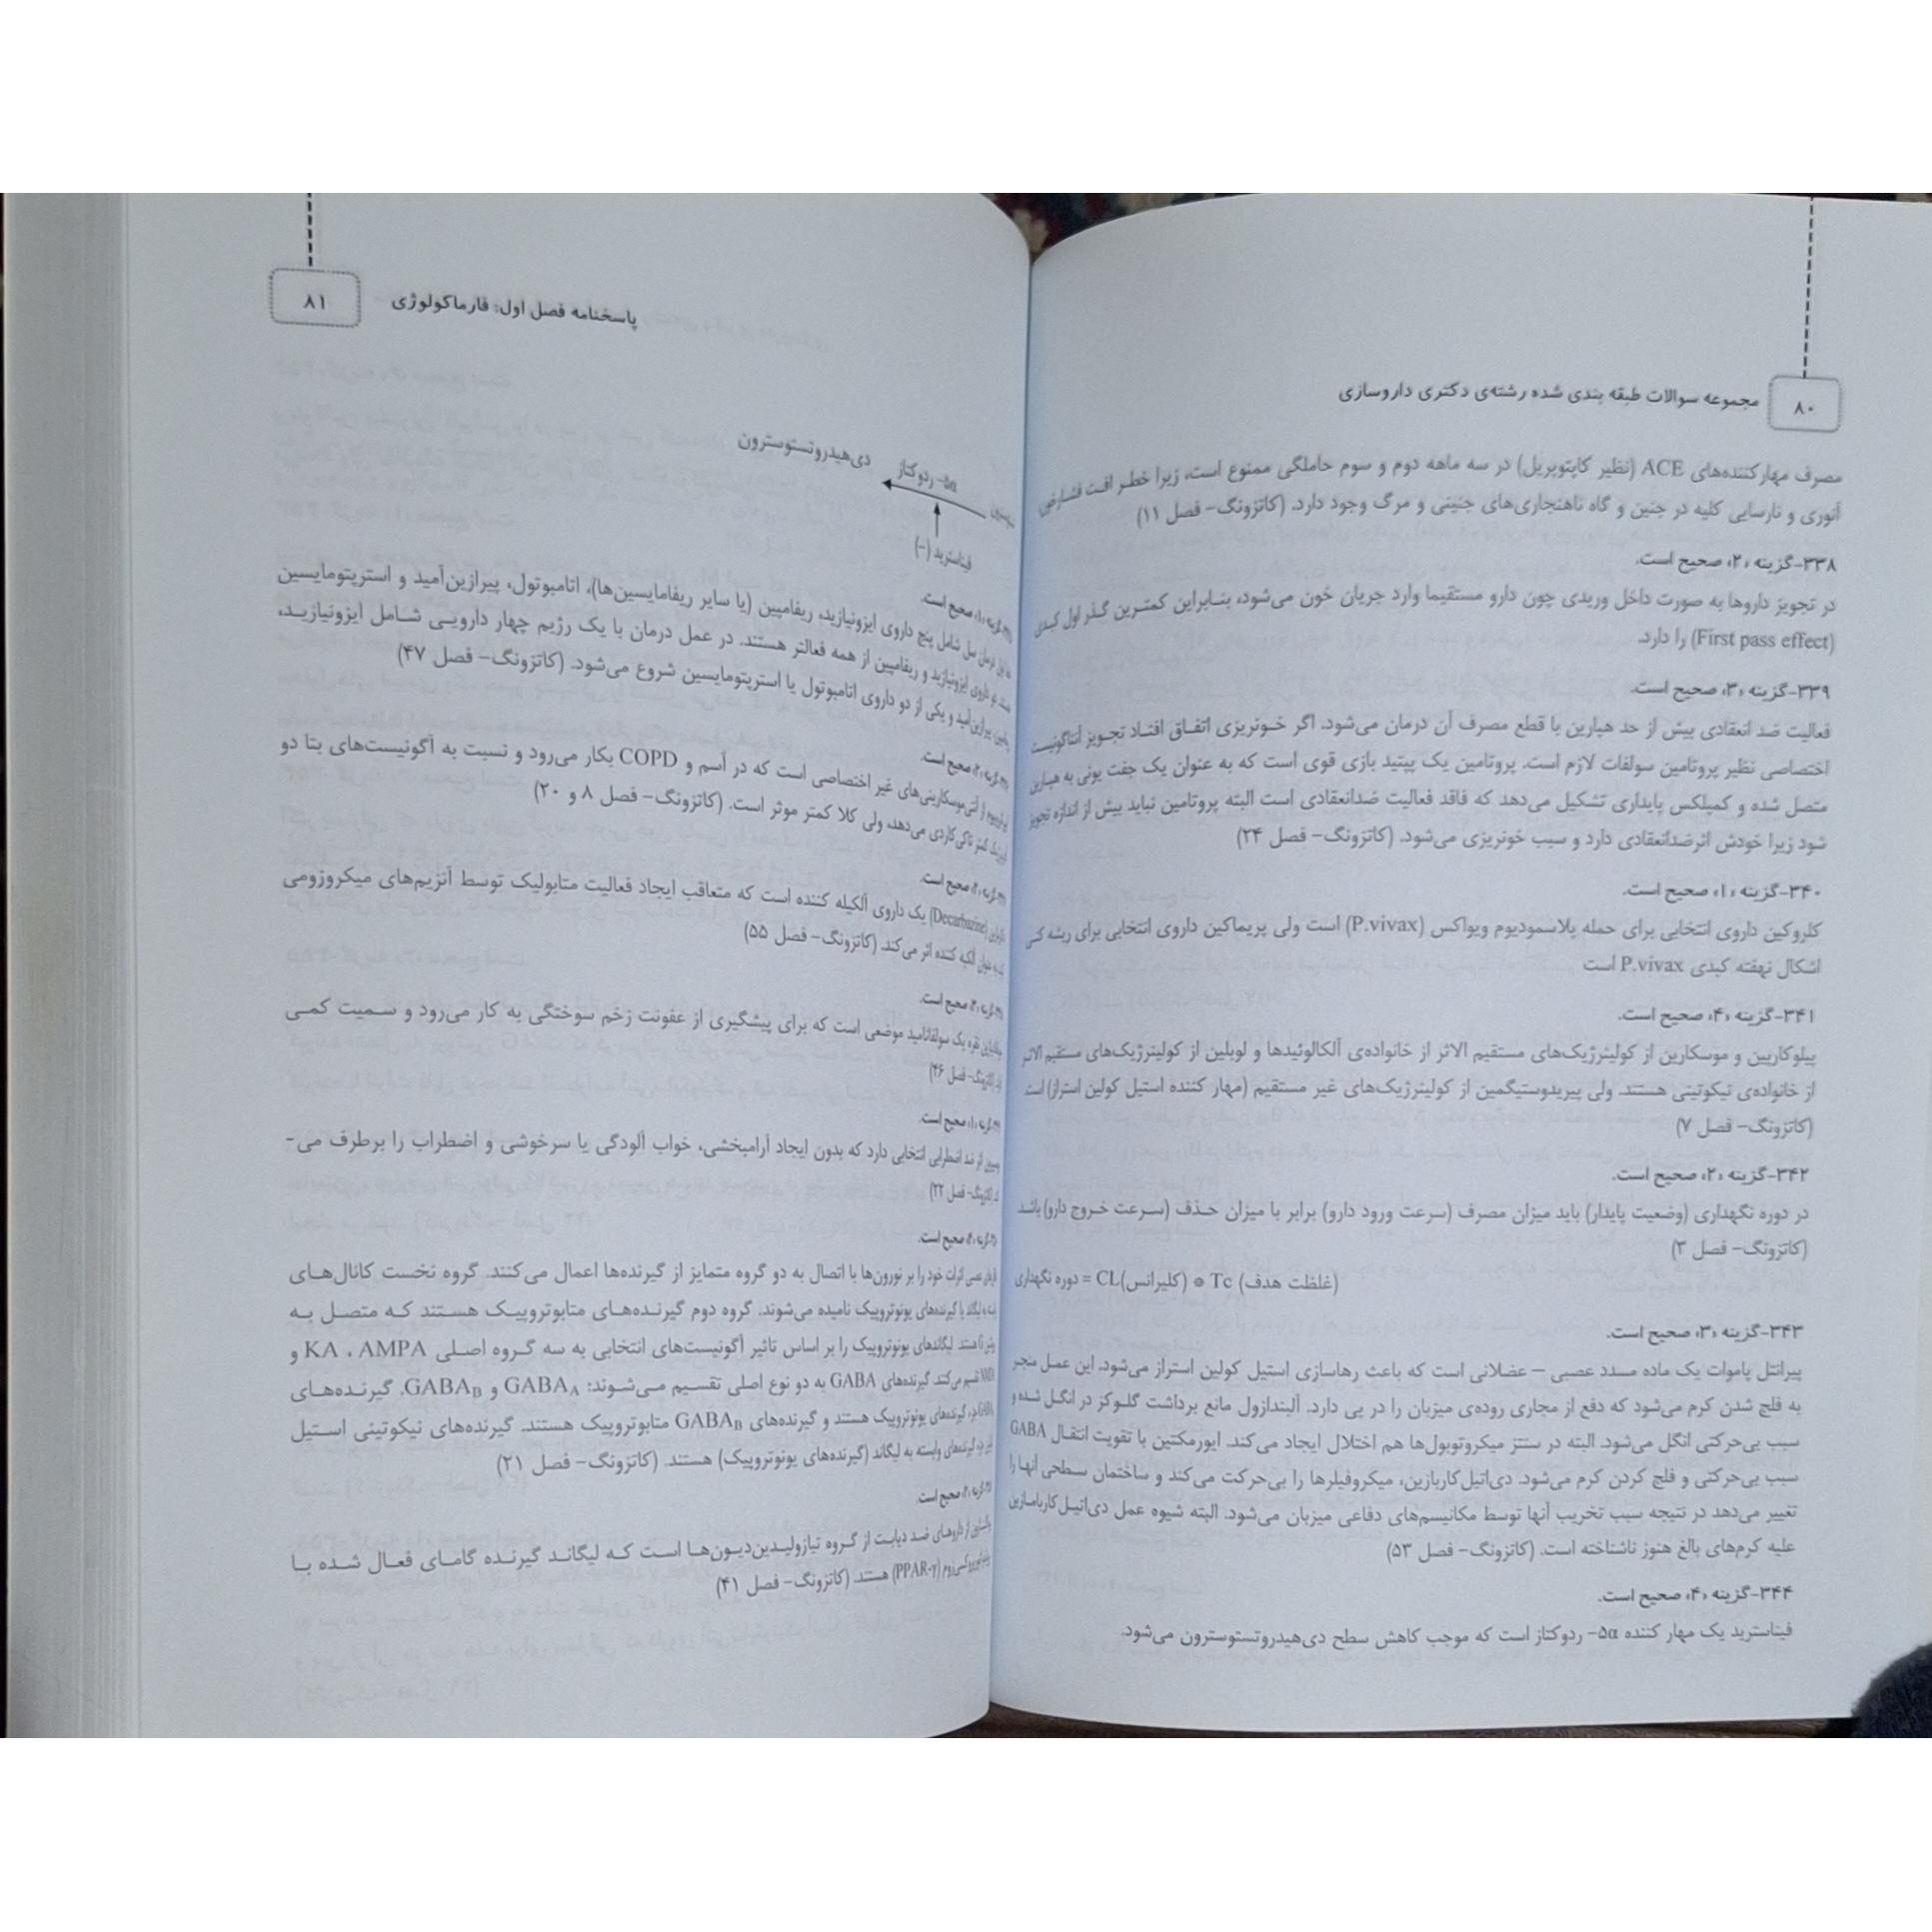 ۸۰
مجموعه سوالات طبقه بندی شده رشته‌ی دکتری داروسازی
مصرف مهارکننده‌های ACE (نظیر کاپتوپریل) در سه ماهه دوم و سوم حاملگی ممنوع است، زیرا خطر افت فشارخون،
آنوری و نارسایی کلیه در جنین و گاه ناهنجاری‌های جنینی و مرگ وجود دارد. (کاتزونگ- فصل ۱۱)
۳۳۸-گزینه «۲» صحیح است.
در تجویز داروها به صورت داخل وریدی چون دارو مستقیما وارد جریان خون می‌شود، بنابراین کمترین گذر اول کبدی
(First pass effect) را دارد.
۳۳۹-گزینه «۳» صحیح است.
فعالیت ضد انعقادی بیش از حد هپارین با قطع مصرف آن درمان می‌شود. اگر خونریزی اتفاق افتاد تجویز آنتاگونیست
اختصاصی نظیر پروتامین سولفات لازم است. پروتامین یک پپتید بازی قوی است که به عنوان یک جفت یونی به هپارین
متصل شده و کمپلکس پایداری تشکیل می‌دهد که فاقد فعالیت ضدانعقادی است البته پروتامین نباید بیش از اندازه تجویز
شود زیرا خودش اثرضدانعقادی دارد و سبب خونریزی می‌شود. (کاتزونگ- فصل ۲۴)
۳۴۰-گزینه «۱» صحیح است.
کلروکین داروی انتخابی برای حمله پلاسمودیوم ویواکس (P.vivax) است ولی پریماکین داروی انتخابی برای ریشه کنی
اشکال نهفته کبدی P.vivax است
۳۴۱-گزینه «۴» صحیح است.
پیلوکارپین و موسکارین از کولینرژیک‌های مستقیم الاثر از خانواده‌ی آلکالوئیدها و لوبلین از کولینرژیک‌های مستقیم الاثر
از خانواده‌ی نیکوتینی هستند. ولی پیریدوستیگمین از کولینرژیک‌های غیر مستقیم (مهار کننده استیل کولین استراز) است
(کاتزونگ- فصل ۷)
۳۴۲-گزینه «۲» صحیح است.
در دوره نگهداری (وضعیت پایدار) باید میزان مصرف (سرعت ورود دارو) برابر با میزان حذف (سرعت خروج دارو) باشد
(کاتزونگ- فصل ۳)
(غلظت هدف) Tc ● (کلیرانس)CL = دوره نگهداری
۳۴۳-گزینه «۳» صحیح است.
پیرانتل پاموات یک ماده مسدد عصبی – عضلانی است که باعث رهاسازی استیل کولین استراز می‌شود. این عمل منجر
به فلج شدن کرم می‌شود که دفع از مجاری روده‌ی میزبان را در پی دارد. آلبندازول مانع برداشت گلوکز در انگل شده و
سبب بی‌حرکتی انگل می‌شود. البته در سنتز میکروتوبول‌ها هم اختلال ایجاد می‌کند. ایورمکتین با تقویت انتقال GABA
سبب بی‌حرکتی و فلج کردن کرم می‌شود. دی‌اتیل‌کاربازین، میکروفیلرها را بی‌حرکت می‌کند و ساختمان سطحی آنها را
تغییر می‌دهد در نتیجه سبب تخریب آنها توسط مکانیسم‌های دفاعی میزبان می‌شود. البته شیوه عمل دی‌اتیل‌کاربامازین
علیه کرم‌های بالغ هنوز ناشناخته است. (کاتزونگ- فصل ۵۳)
۳۴۴-گزینه «۴» صحیح است.
فیناسترید یک مهار کننده ۵α- ردوکتاز است که موجب کاهش سطح دی‌هیدروتستوسترون می‌شود.
پاسخنامه فصل اول: فارماکولوژی
۸۱
۵α- ردوکتاز
دی‌هیدروتستوسترون
فیناسترید (-)
گزینه «۱» صحیح است.
درمان سل شامل پنج داروی ایزونیازید، ریفامپین (یا سایر ریفامایسین‌ها)، اتامبوتول، پیرازین‌آمید و استرپتومایسین
دو داروی ایزونیازید و ریفامپین از همه فعالتر هستند. در عمل درمان با یک رژیم چهار دارویی شامل ایزونیازید،
پیرازین‌آمید و یکی از دو داروی اتامبوتول یا استرپتومایسین شروع می‌شود. (کاتزونگ- فصل ۴۷)
گزینه صحیح است.
از آنتی‌موسکارینی‌های غیر اختصاصی است که در آسم و COPD بکار می‌رود و نسبت به آگونیست‌های بتا دو
کمتر تاکی‌کاردی می‌دهد، ولی کلا کمتر موثر است. (کاتزونگ- فصل ۸ و ۲۰)
گزینه صحیح است.
(Decarbazine) یک داروی آلکیله کننده است که متعاقب ایجاد فعالیت متابولیک توسط آنزیم‌های میکروزومی
به عنوان آلکیله کننده اثر می‌کند. (کاتزونگ- فصل ۵۵)
گزینه صحیح است.
نقره یک سولفانامید موضعی است که برای پیشگیری از عفونت زخم سوختگی به کار می‌رود و سمیت کمی
(کاتزونگ- فصل ۴۶)
گزینه «۱» صحیح است.
اثر ضد اضطرابی انتخابی دارد که بدون ایجاد آرامبخشی، خواب آلودگی یا سرخوشی و اضطراب را برطرف می-
(کاتزونگ- فصل ۲۲)
گزینه صحیح است.
عصبی اثرات خود را بر نورون‌ها با اتصال به دو گروه متمایز از گیرنده‌ها اعمال می‌کنند. گروه نخست کانال‌های
به لیگاند یا گیرنده‌های یونوتروپیک نامیده می‌شوند. گروه دوم گیرنده‌های متابوتروپیک هستند که متصل به
هستند. لیگاندهای یونوتروپیک را بر اساس تاثیر آگونیست‌های انتخابی به سه گروه اصلی KA ، AMPA و
تقسیم می‌کنند. گیرنده‌های GABA به دو نوع اصلی تقسیم می‌شوند: GABAA و GABAB. گیرنده‌های
گیرنده‌های یونوتروپیک هستند و گیرنده‌های GABAB متابوتروپیک هستند. گیرنده‌های نیکوتینی استیل
گیرنده‌های وابسته به لیگاند (گیرنده‌های یونوتروپیک) هستند. (کاتزونگ- فصل ۲۱)
گزینه صحیح است.
از داروهای ضد دیابت از گروه تیازولیدین‌دیون‌ها است که لیگاند گیرنده گامای فعال شده با
(PPAR-γ) هستند. (کاتزونگ- فصل ۴۱)